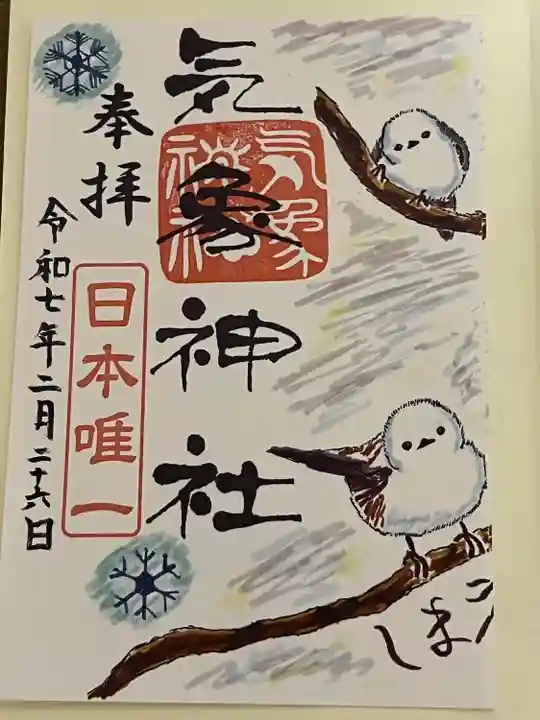 気象神社
気象
神社
奉拝
日本唯一
令和七年二月二十六日
しま